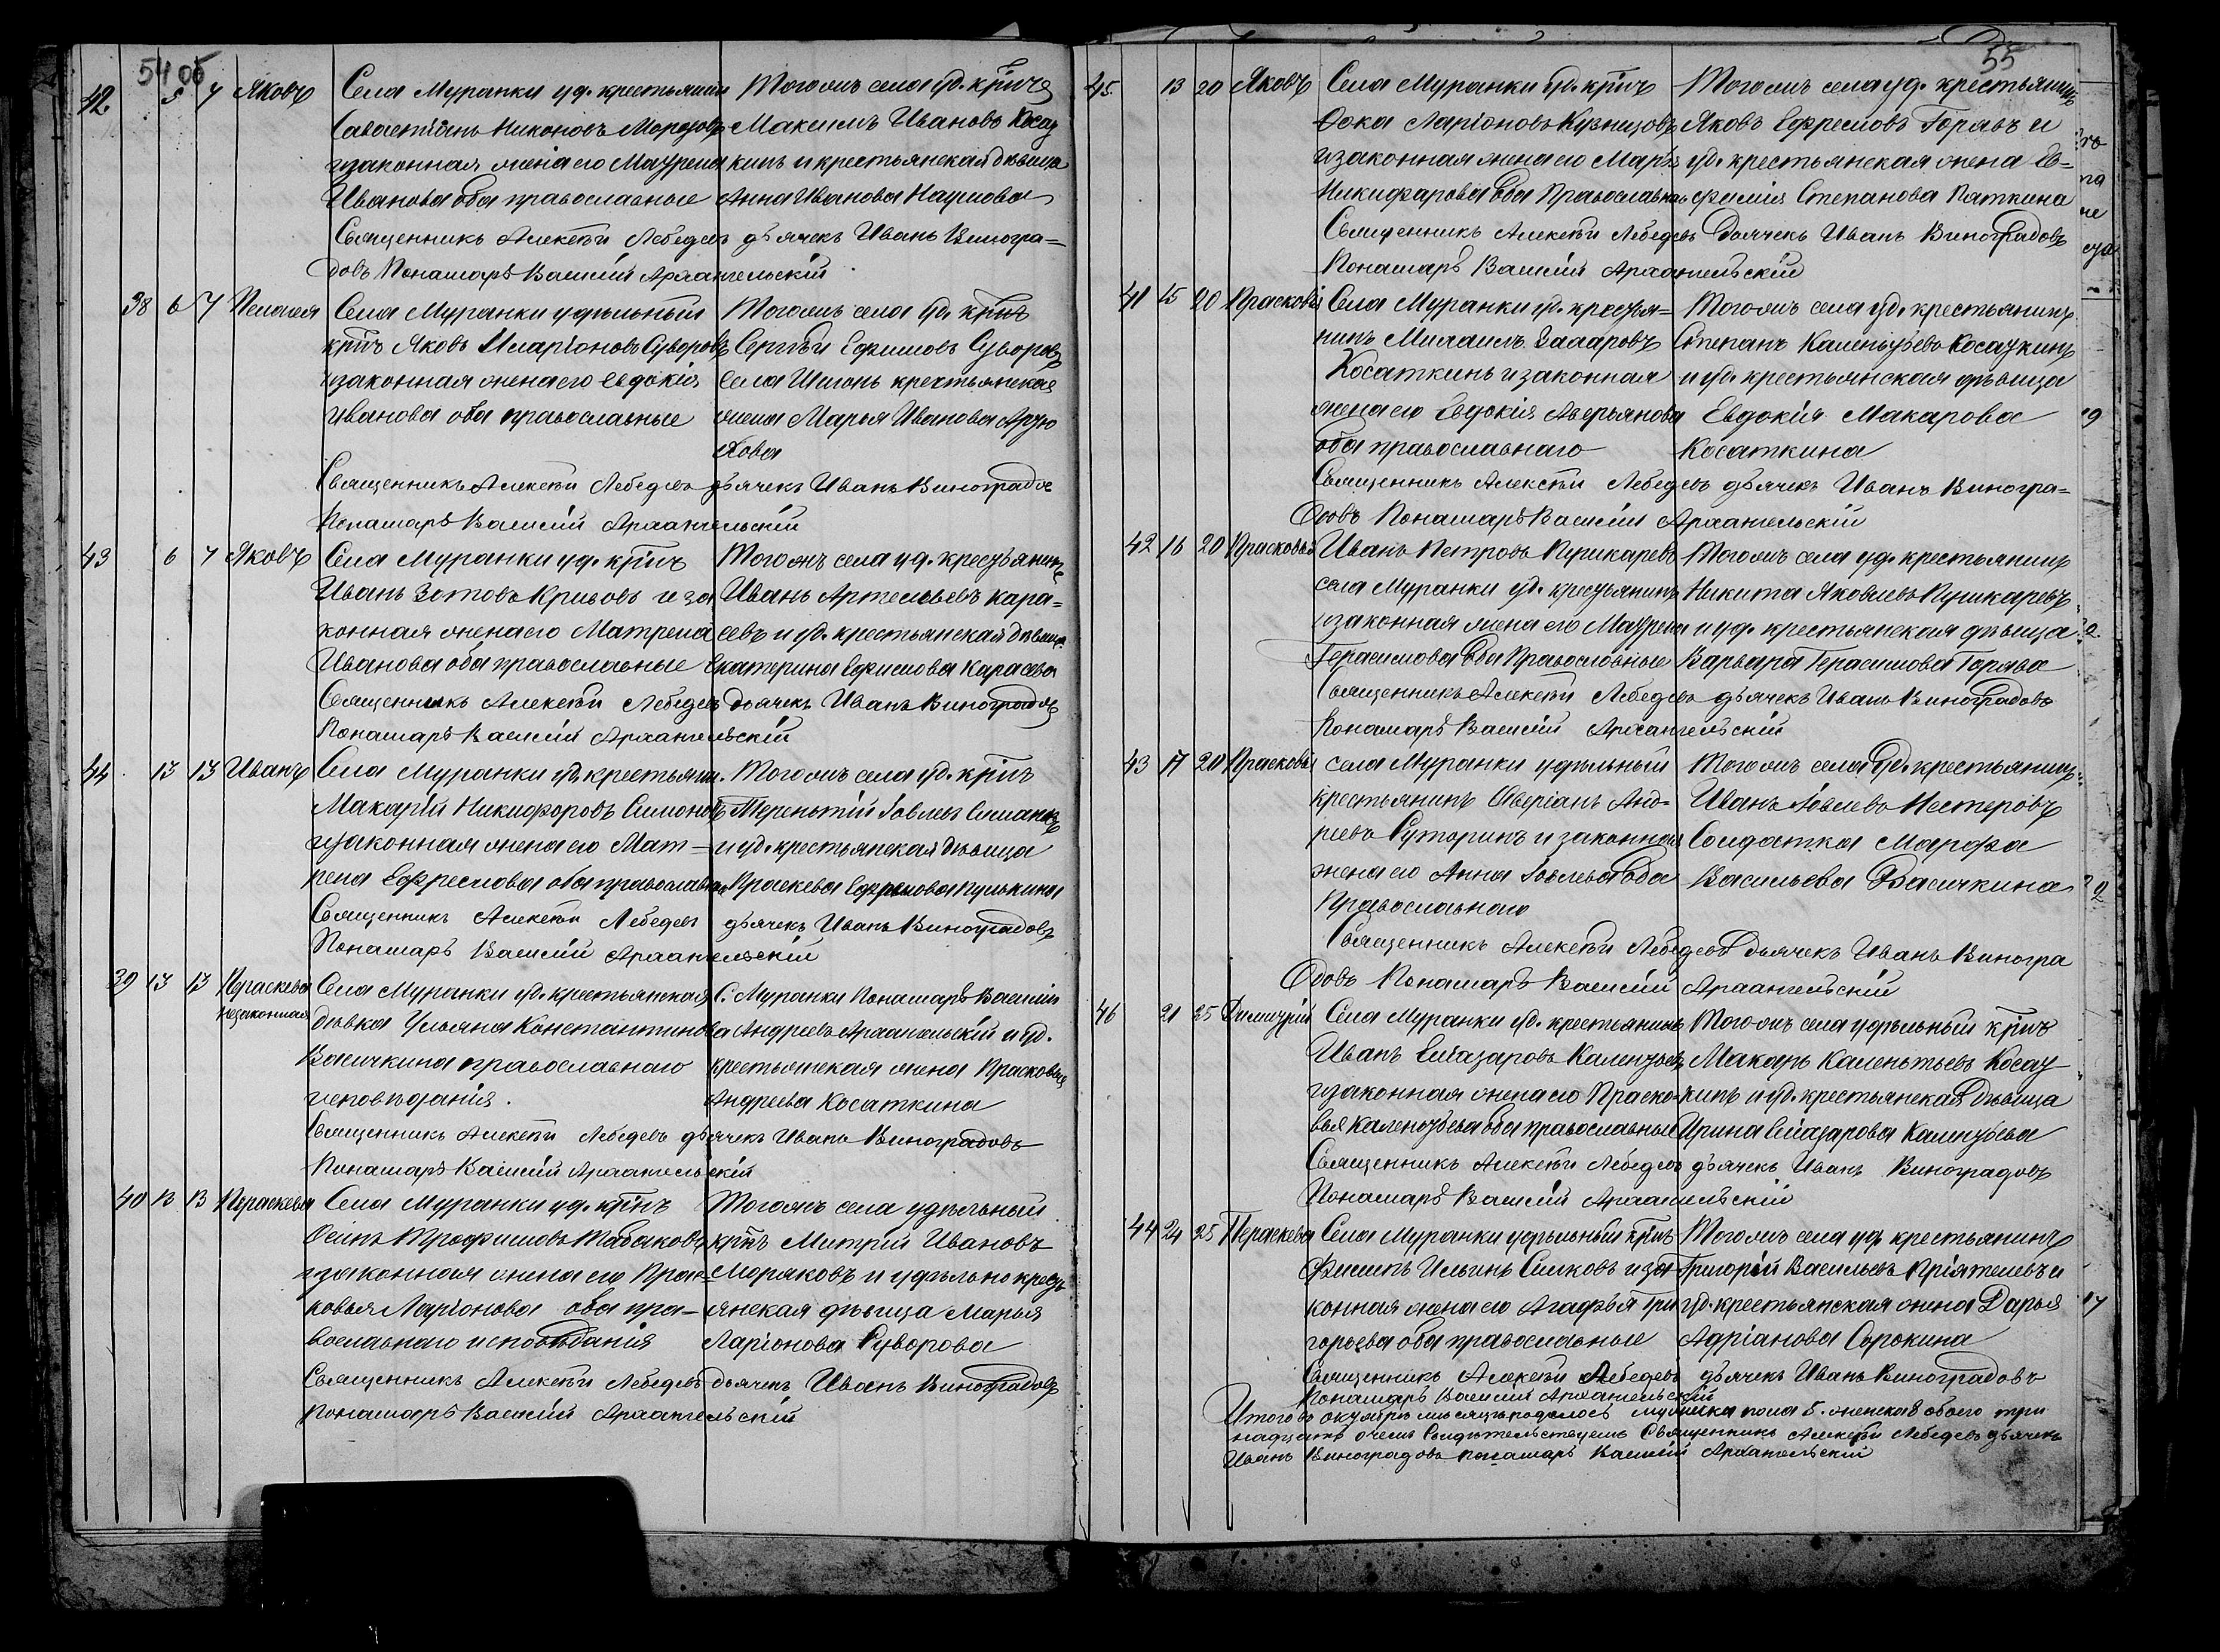 54 об
42 5 7 Яковъ Села Муранки уд. крестьянинъ
Савастіянъ Никоновъ Морозовъ
и законная жена его Матрена
Иванова оба православные
Тогожъ села уд. кр҃нъ
Максимъ Ивановъ Косат
кинъ и крестьянская дѣвица
Анна Иванова Наумова
Священникъ Алексѣй Лебедевъ дьячекъ Иванъ Виногра=
довъ Понамарь Василій Архангельскій
38 6 7 Пелагея Села Муранки удѣльный
кр҃нъ Яковъ Иларіоновъ Суворовъ
и законная жена его Евдокія
Иванова оба православные
Тогожъ села уд. кр҃нъ
Сергѣй Ефимовъ Суворовъ
села Шигонь крестьянская
жена Марья Иванова
Священникъ Алексѣй Лебедевъ дьячекъ Иванъ Виноградов
Понамарь Василій Архангельскій
43 6 7 Яковъ Села Муранки уд. кр҃нъ
Иванъ Зотовъ Кривовъ и за
конная жена его Матрена
Иванова оба православные
Тогожъ села уд. крестьянинъ
Иванъ Артемьевъ Кара=
севъ и уд. крестьянская дѣвица
Екатерина Ефимова Карасева
Священникъ Алексѣй Лебедевъ дьячекъ Иванъ Виноградовъ
Понамарь Василій Архангельскій
44 13 13 Иванъ Села Муранки уд. крестьяни.
Макарій Никифоровъ Симоновъ
и законная жена его Мат=
рена Ефремова оба православн
Тогожъ села уд. кр҃нъ
Терентій Іовлевъ
и уд. крестьянская дѣвица
Праскева Ефремова Пулькина
Священникъ Алексѣй Лебедевъ дьячекъ Иванъ Виноградовъ
Понамарь Василій Архангельскій
39 13 13 Параскева
незаконная
Села Муранки уд. крестьянская
дѣвка Ульяна Константинова
Васичкина православнаго
исповѣданія.
С. Муранки Понамарь Василій
Андреевъ Архангельскій и уд.
крестьянская жена Прасковья
Андреева Косаткина
Священникъ Алексѣй Лебедевъ дьячекъ Иванъ Виноградовъ
Понамарь Василій Архангельскій
40 13 13 Параскева Села Муранки уд. кр҃нъ
Осипъ Трофимовъ Табаковъ
и законная жена его Прас=
ковья Ларіонова оба пра-
вославнаго исповѣданія
Тогожъ села удѣльный
кр҃нъ Митрій Ивановъ
Моряковъ и удѣльно кресть
янская дѣвица Марья
Ларіонова Суворова
Священникъ Алексѣй Лебедевъ дьячекъ Иванъ Виноградовъ
Понамарь Василій Архангельскій
55
45. 13 20 Яковъ Села Муранки уд. кр҃нъ
Фока Ларіоновъ Кузнецовъ
и законная жена его Марья
Никифарова оба Православны
Тогожъ села уд. крестьянинъ
Яковъ Ефремовъ Горявъ и
уд. крестьянская жена Ев=
фимія Степанова Пяткина
Священникъ Алексѣй Лебедевъ Дьячекъ Иванъ Виноградовъ
Понамарь Василій Архангельскій
41 15 20 Прасковья Села Муранки уд. крестья=
нинъ Михаилъ Захаровъ
Косаткинъ и законная
жена его Евдокія Аверьянова
оба православнаго
Тогожъ села уд. крестьянинъ
Степанъ Калентьевъ Косаткинъ
и уд. крестьянская дѣвица
Евдокія Макарова
Косаткина
Священникъ Алексѣй Лебедевъ дьячекъ Иванъ Виногра=
довъ Понамарь Василій Архангельскій
42 16 20 Прасковья Иванъ Петровъ Пушкаревъ
села Муранки уд. крестьянинъ
и законная жена его Матрена
Герасимова оба Православные
Тогожъ села уд. крестьянинъ
Никита Яковлевъ Пушкаревъ
и уд. крестьянская дѣвица
Варвара Герасимова Горява
Священникъ Алексѣй Лебедевъ дьячекъ Иванъ Виноградовъ
Понамарь Василій Архангельскій
43 17 20 Прасковья села Муранки удѣльный
крестьянинъ Аверіанъ Анд=
реевъ Суторинъ и законная
жена его Анна Іовлева оба
Православнаго
Тогожъ села уд. крестьянинъ
Иванъ Іовлевъ Нестеровъ
Солдатка Марфа
Васильева Васичкина
Священникъ Алексѣй Лебедевъ Дьячекъ Иванъ Виногра
довъ Понамарь Василій Архангельскій
46 21 25 Димитрій Села Муранки уд. крестьянинъ
Иванъ Елиазаровъ Калентьевъ
и законная жена его Праско-
вья Калентьева оба православные
Тогожъ села удѣльный кр҃нъ
Макаръ Калентьевъ Косат
кинъ и уд. крестьянская Дѣвица
Ирина Елиазарова Калентьева
Священникъ Алексѣй Лебедевъ дьячекъ Иванъ Виноградовъ
Понамарь Василій Архангельскій
44 24 25 Параскева Села Муранки удѣльный кр҃нъ
Филипъ Ильинъ Симковъ и за
конная жена его Агафья Гри
горьева оба православные
Тогожъ села уд. крестьянинъ
Григорій Васильевъ Пріятелевъ и
уд. крестьянская жена Дарья
Адріанова Сорокина
Священникъ Алексѣй Лебедевъ дьячекъ Иванъ Виноградовъ
Понамарь Василій Архангельскій
Итого въ октябрѣ мѣсяцѣ родилось мужеска пола 5. женска 8 обоего три
надцать очемъ Свидѣтельствуемъ Священникъ Алексѣй Лебедевъ дьячекъ
Иванъ Виноградовъ понамарь Василій Архангельскій